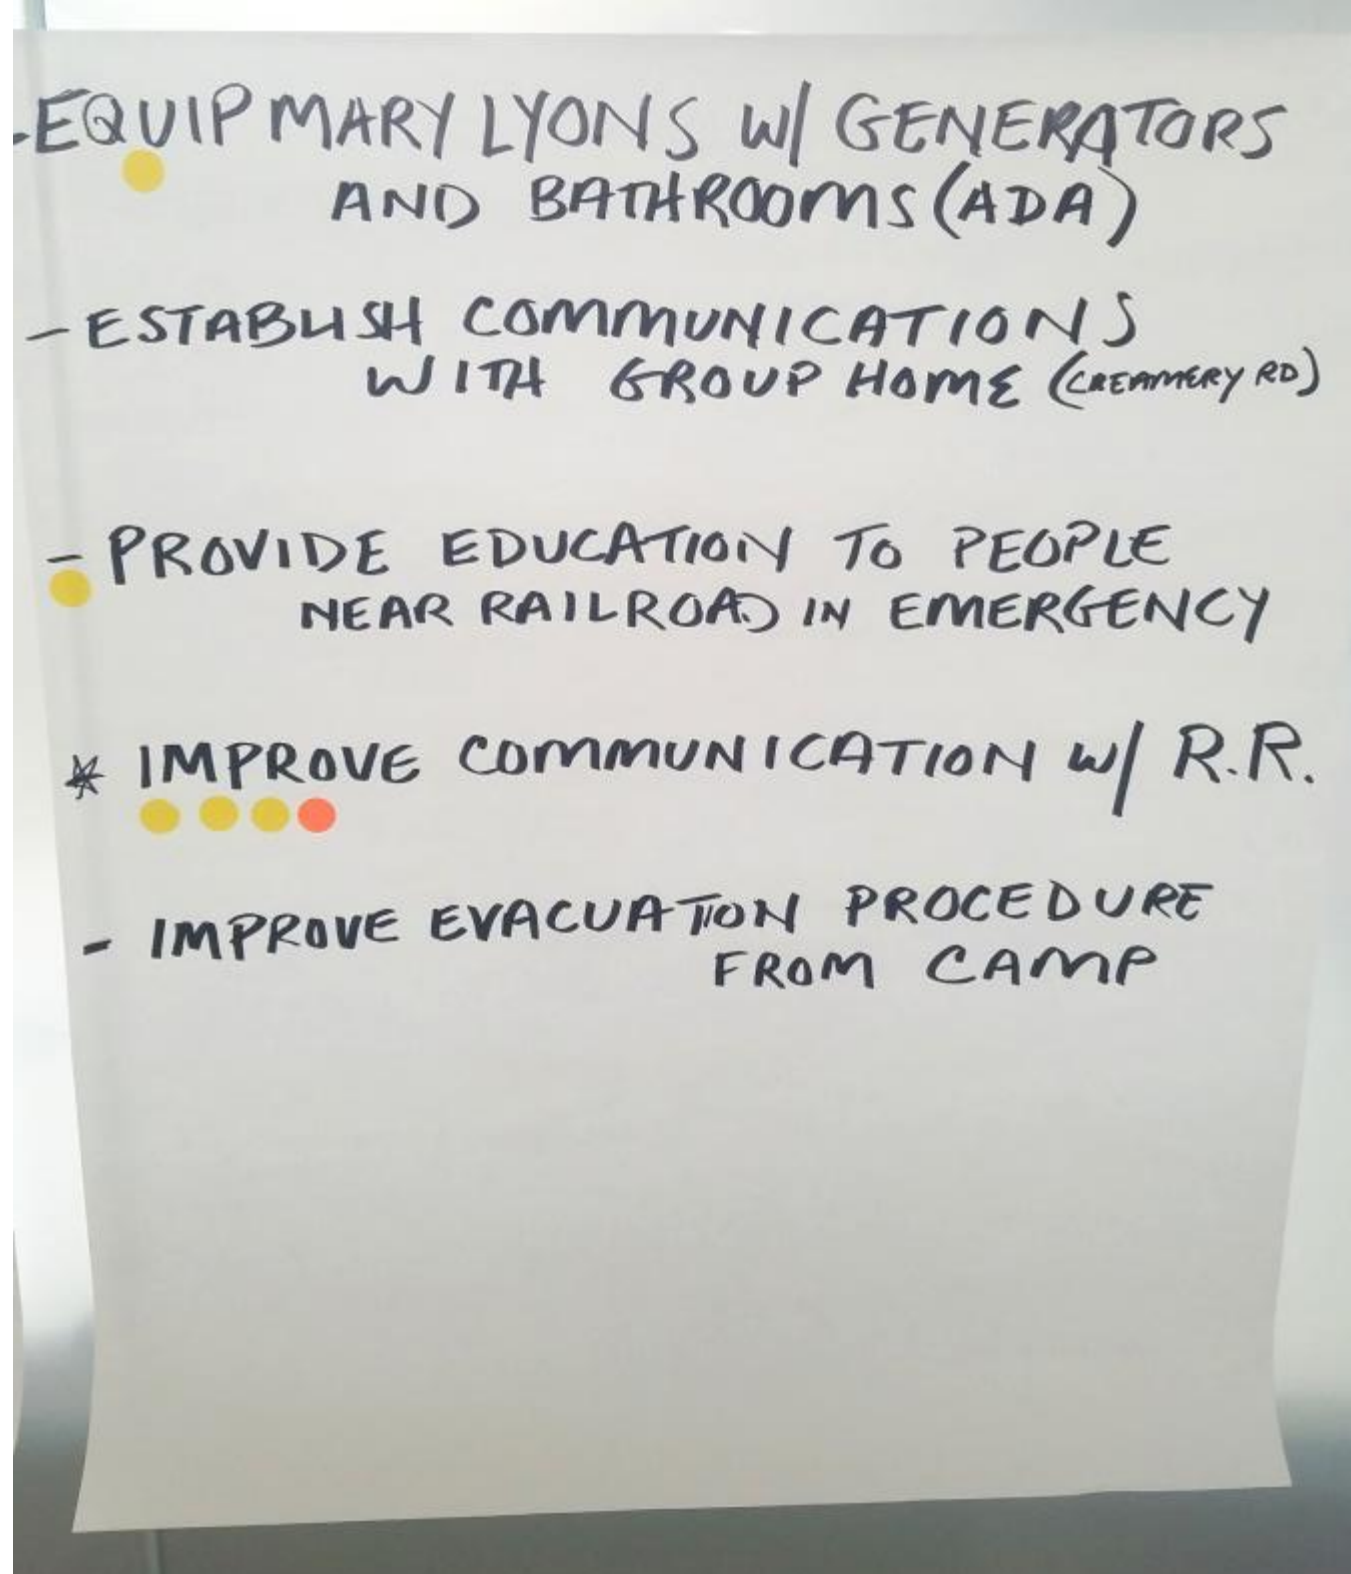 - EQUIP MARY LYONS W/ GENERATORS
AND BATHROOMS (ADA)
- ESTABLISH COMMUNICATIONS
WITH GROUP HOME (CREAMERY RD)
- PROVIDE EDUCATION TO PEOPLE
NEAR RAILROAD IN EMERGENCY
* IMPROVE COMMUNICATION W/ R.R.
- IMPROVE EVACUATION PROCEDURE
FROM CAMP